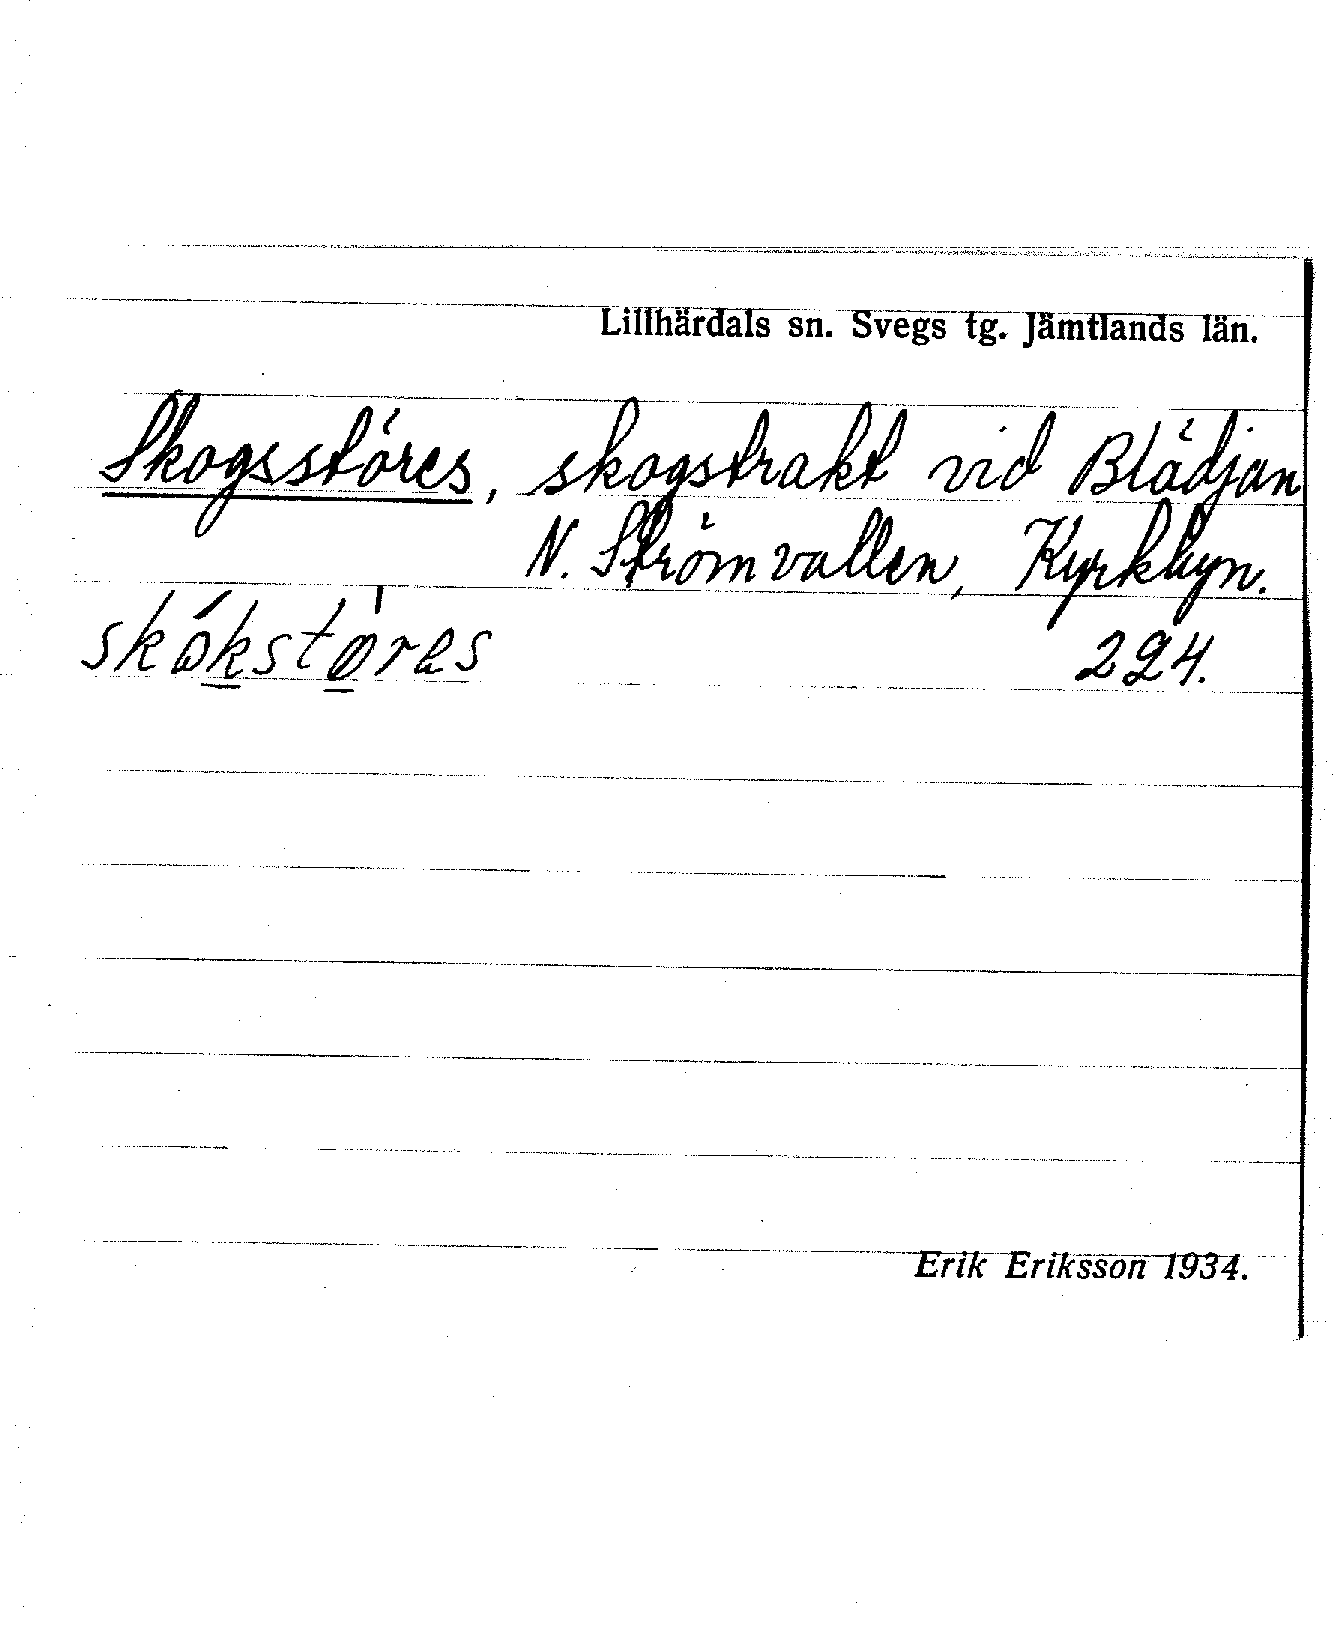 Lillhärdals sn. Svegs tg. Jämtlands län.
Skogsstöres, skogstrakt vid Blädjan
N. Strömvallen, Kyrkbyn.
skökstöres 224.
Erik Eriksson 1934.